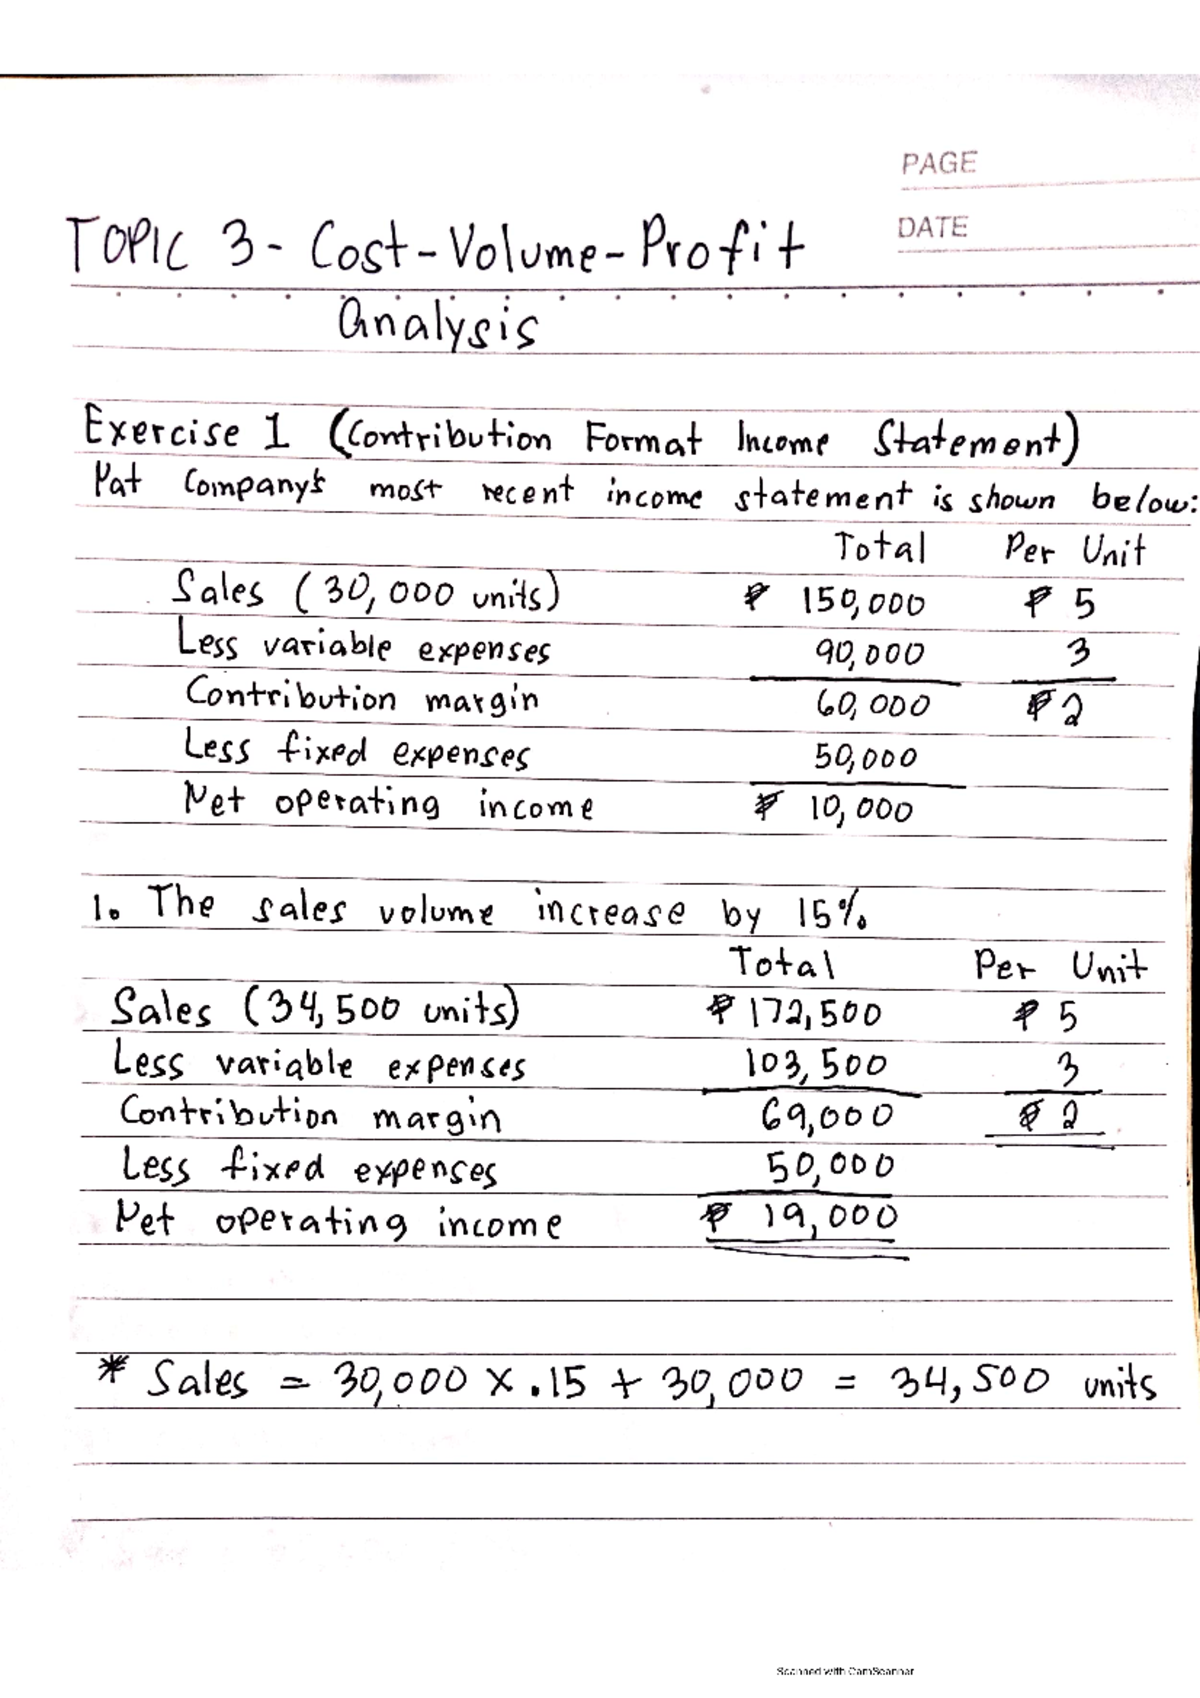 PAGE
DATE
TOPIC 3 - Cost-Volume-Profit
Analysis
Exercise 1 (Contribution Format Income Statement)
Pat Company's most recent income statement is shown below:
Total Per Unit
Sales (30,000 units) ₱ 150,000 ₱ 5
Less variable expenses 90,000 3
Contribution margin 60,000 ₱ 2
Less fixed expenses 50,000
Net operating income ₱ 10,000
1. The sales volume increase by 15%
Total Per Unit
Sales (34,500 units) ₱ 172,500 ₱ 5
Less variable expenses 103,500 3
Contribution margin 69,000 ₱ 2
Less fixed expenses 50,000
Net operating income ₱ 19,000
* Sales = 30,000 x .15 + 30,000 = 34,500 units
Scanned with CamScanner